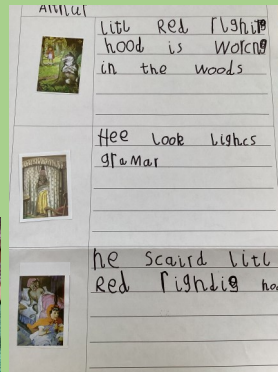 litl Red righite
hood is worcng
in the woods
Hee look lighcs
gramar
he scaird litl
Red rightie